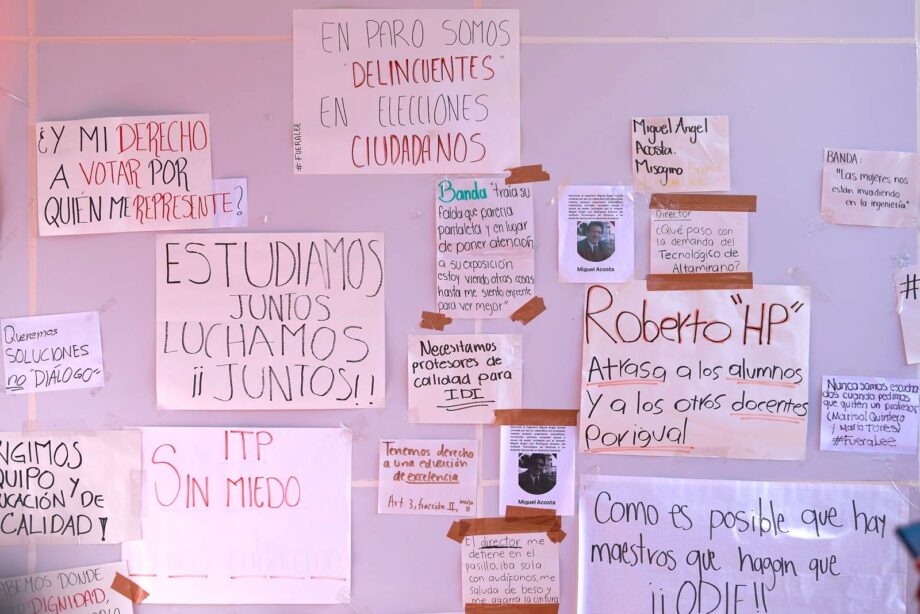 EN PARO SOMOS
"DELINCUENTES"
EN ELECCIONES
CIUDADANOS
#FUERALEE
¿Y MI DERECHO
A VOTAR POR
QUIÉN ME REPRESENTE?
Miguel Angel
Acosta.
Misogino
BANDA:
"Las mujeres nos
están invadiendo
en la ingeniería"
Banda "traía su
Falda que parecía
pantaleta y en lugar
de poner atención
a su exposición
estoy viendo otras cosas
hasta me siento enfrente
para ver mejor"
Miguel Acosta
Director
¿Qué paso con
la demanda del
Tecnológico de
Altamirano?
ESTUDIAMOS
JUNTOS
LUCHAMOS
¡¡JUNTOS!!
Queremos
SOLUCIONES
no "DIÁLOGO"
Necesitamos
profesores de
calidad para
IDI
Roberto "HP"
Atrasa a los alumnos
Y a los otros docentes
por igual
#
Nunca somos escucha
dos cuando pedimos
que quiten un profesor
(Marisol Quintero
y Mario Torres)
#FueraLee
NGIMOS
EQUIPO Y
UCACIÓN DE
CALIDAD!
ITP
SIN MIEDO
Tenemos derecho
a una educación
de excelencia
Art. 3, fracción II,
Miguel Acosta
El director me
detiene en el
pasillo, iba
sola con audífonos, me
saluda de beso y
me agarra la cintura
Como es posible que hay
maestros que hagan que
¡¡ODIE!!
ABEMOS DÓNDE
DIGNIDAD,